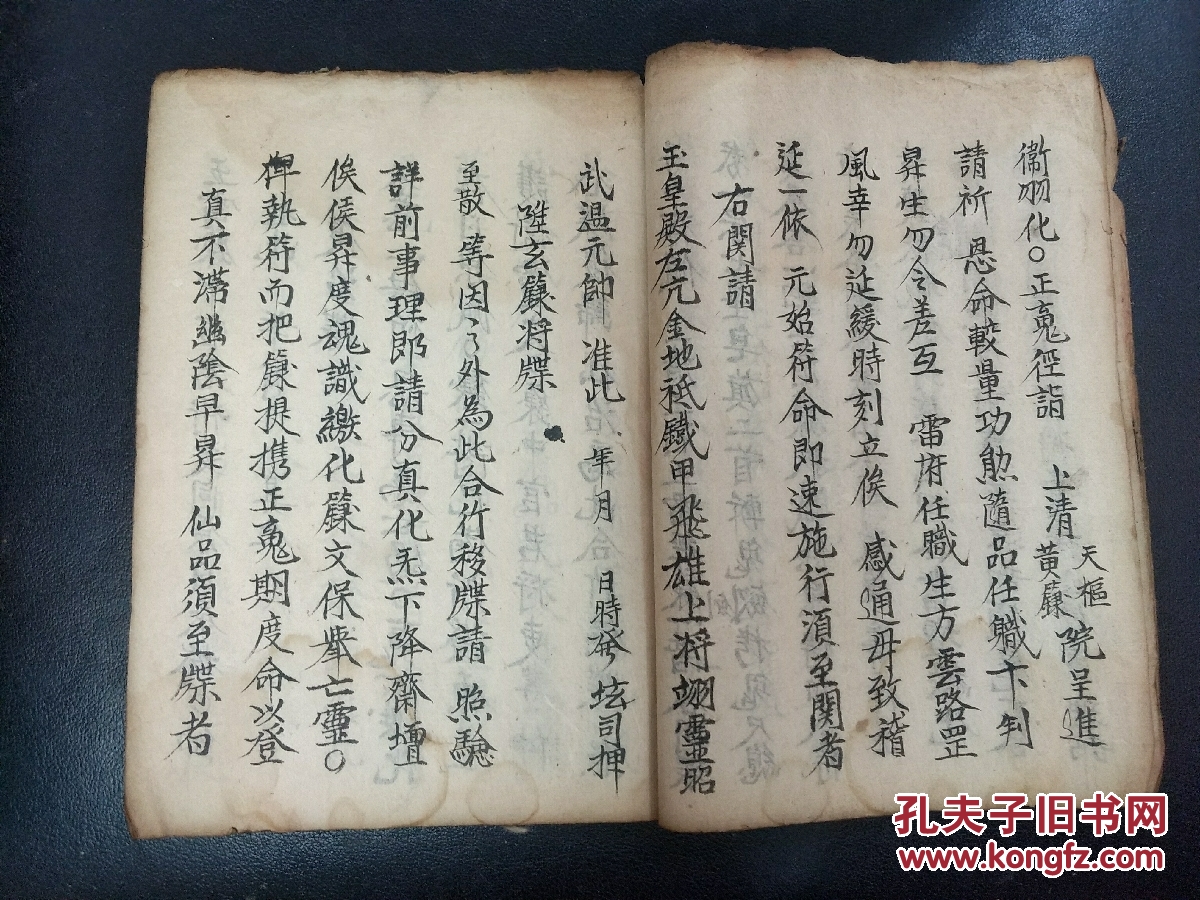 衞羽化〇正鬼徑詣 上清 天樞 黃籙 院呈進
請祈 恩命較量功勲隨品任軄卞判
昇生勿令差互 雷府任職生方雲路罡
風幸勿延緩時刻立俟 感通毋致稽
延一依 元始符命即速施行須至関者
右関請
玉皇殿左元金地祇鐵甲飛雄上将翊靈昭
武温元帥 准此 年月 日時發 坛司押
陞玄籙将牒
至散 等因之外為此合行移牒請 照驗
詳前事理即請分真化炁下降齋壇
俟侯昇度魂識繳化籙文保舉亡靈〇
俾執符而把籙提携正鬼期度命以登
真不滯幽陰早昇 仙品須至牒者
孔夫子旧书网
www.kongfz.com